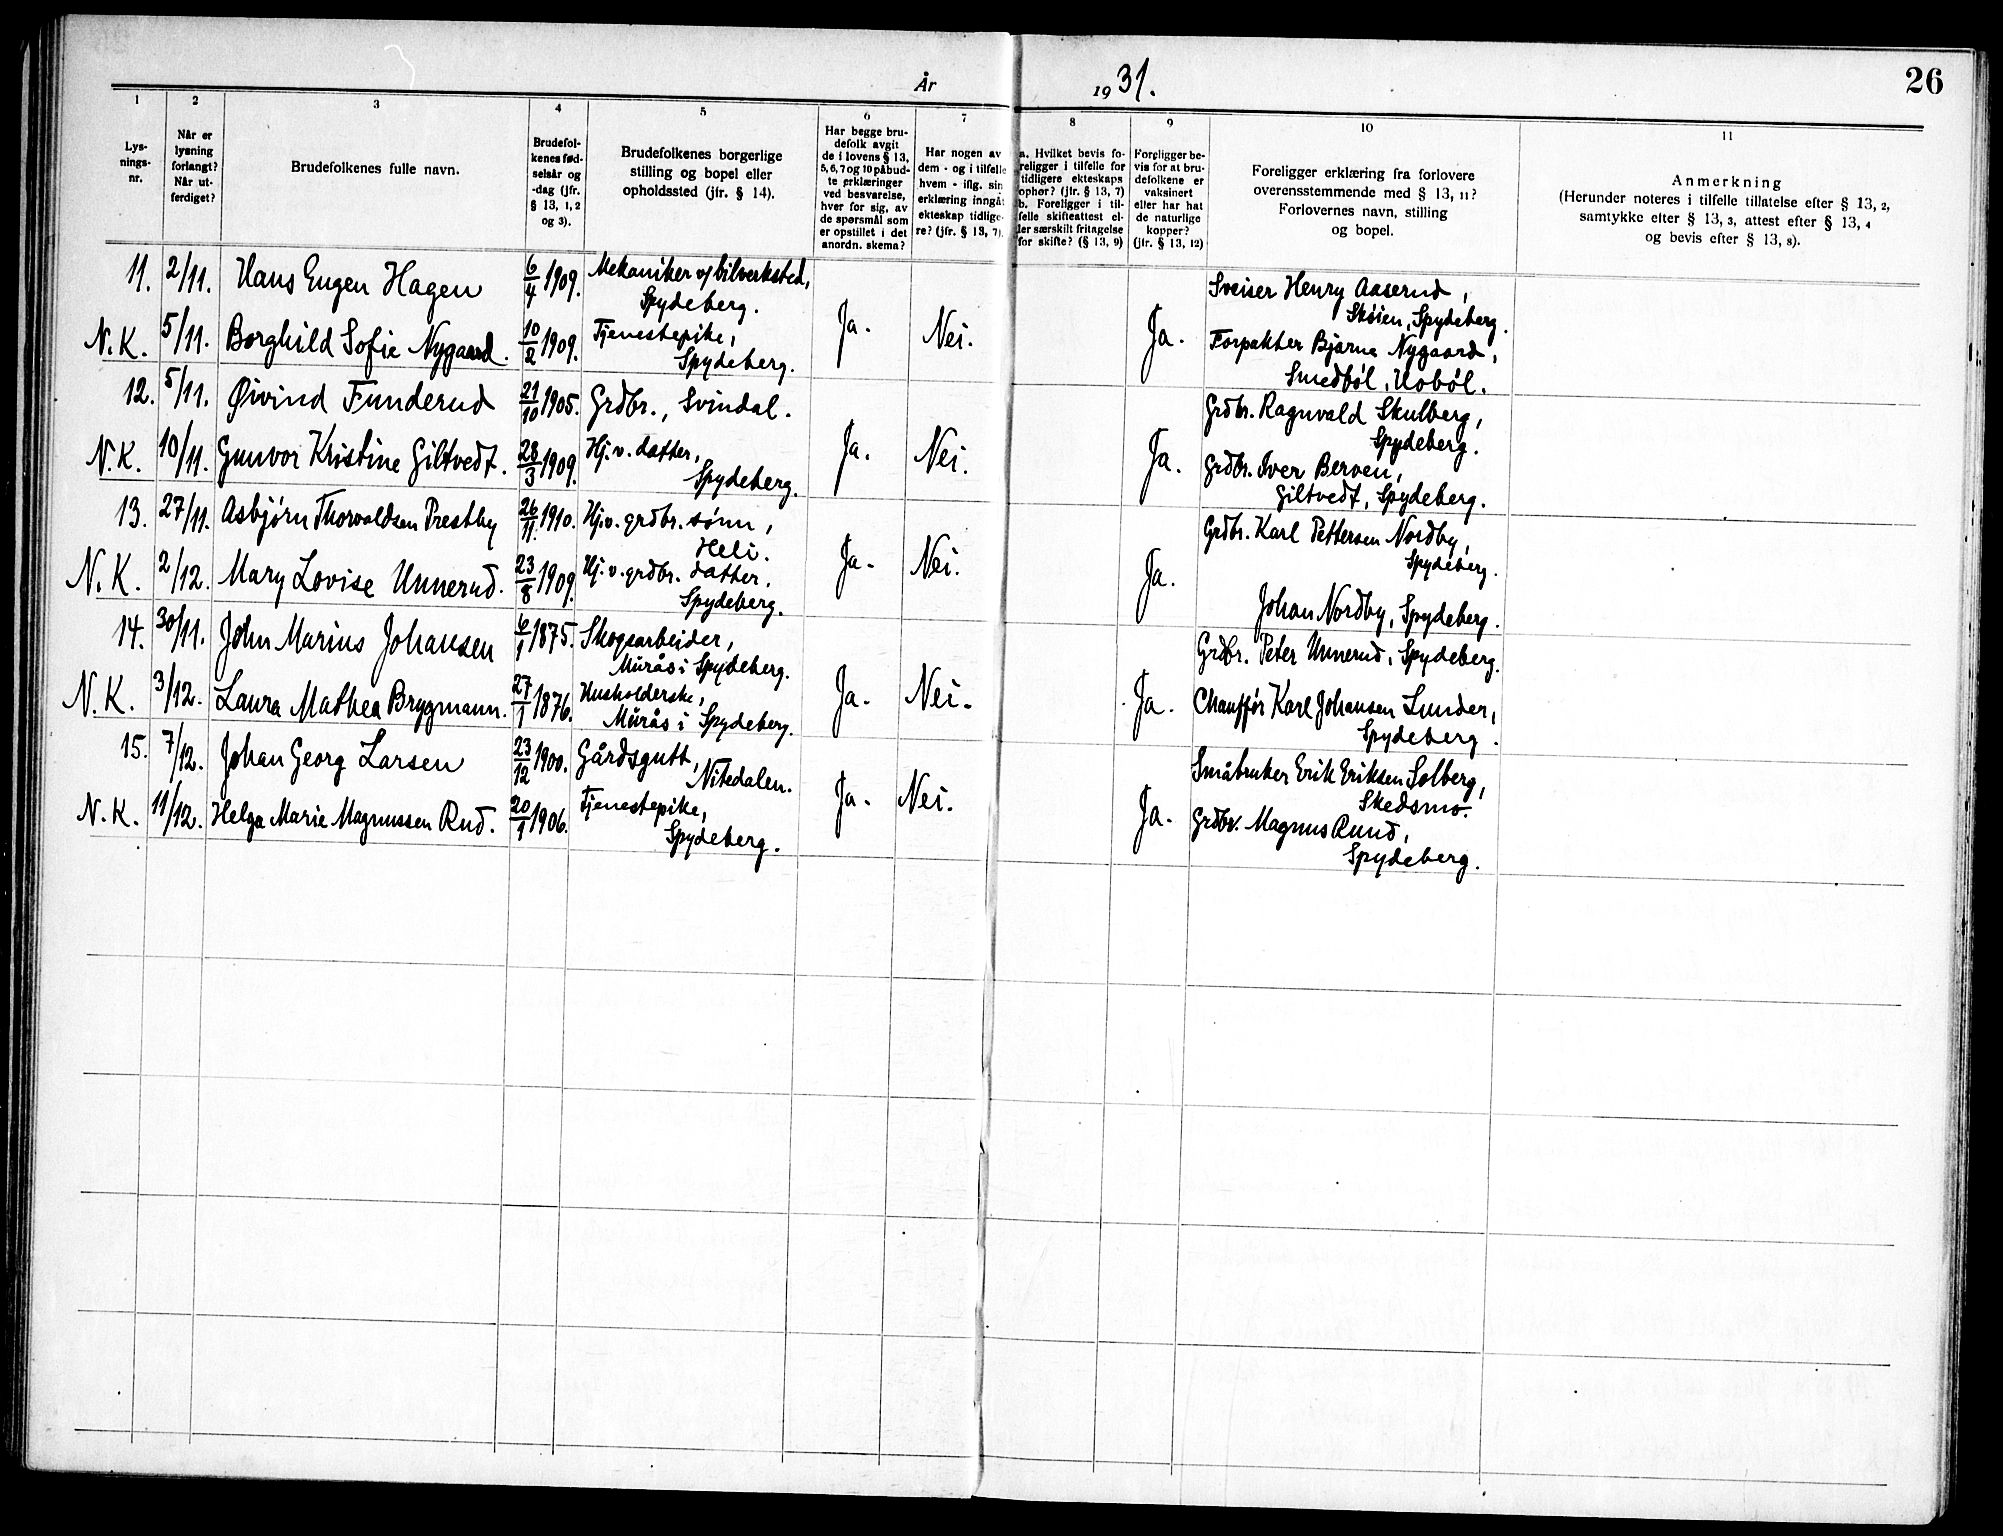 År 1931.
26
1 2 3 4 5 6 7 8 9 10 11
Lys-
nings-
nr.
Når er
lysning
forlangt?
Når ut-
ferdiget?
Brudefolkenes fulle navn.
Brudefol-
kenes fød-
selsår og
-dag (jfr.
§ 13, 1, 2
og 3).
Brudefolkenes borgerlige
stilling og bopel eller
opholdssted (jfr. § 14).
Har begge bru-
defolk avgit
de i lovens § 13,
5, 6, 7 og 10 påbud-
te erklæringer
ved besvarelse,
hver for sig, av
de spørsmål som
er opstillet i det
anordn. skema?
Har nogen av
dem - og i tilfelle
hvem - iflg. sin
erklæring inngåt
ekteskap tidlige-
re? (jfr. § 13, 7).
a. Hvilket bevis fo-
religger i tilfelle for
tidligere ekteskaps
ophør? (jfr. § 13, 7)
b. Foreligger i til-
felle skifteattest el-
ler særskilt fritagelse
for skifte? (§ 13, 9)
Foreligger be-
vis for at bru-
defolkene er
vaksinert
eller har hat
de naturlige
kopper?
(jfr. § 13, 12)
Foreligger erklæring fra forlovere
overensstemmende med § 13, 11?
Forlovernes navn, stilling
og bopel.
Anmerkning
(Herunder noteres i tilfelle tillatelse efter § 13, 2,
samtykke efter § 13, 3, attest efter § 13, 4
og bevis efter § 13, 8).
11. 2/11. Hans Eugen Hagen 6/4 1909. Mekaniker v/ bilverksted,
Spydeberg.
Ja. Nei. Ja.
Sveiser Henry Aaserud,
Skøien, Spydeberg.
N.K. 5/11. Borghild Sofie Nygaard. 10/2 1909. Tjenestepike,
Spydeberg.
Forpakter Bjarne Nygaard,
Smedbøl, Hobøl.
12. 5/11. Øivind Funderud 21/10 1905. Grdbr., Svindal.
Ja. Nei. Ja.
Grdbr. Ragnvald Skulberg,
Spydeberg.
N.K. 10/11. Gunvor Kristine Giltvedt. 28/3 1909. Hj. v. datter,
Spydeberg.
Grdbr. Iver Berven,
Giltvedt, Spydeberg.
13. 27/11. Asbjørn Thorvaldsen Prestby 26/11. 1910. Hj. v. grdbr. sønn,
Heli.
Ja. Nei. Ja.
Grdbr. Karl Pettersen Nordby,
Spydeberg.
N.K. 2/12. Mary Lovise Unnerud. 23/8 1909. Hj. v. grdbr. datter.
Spydeberg.
Johan Nordby, Spydeberg.
14. 30/11. John Marius Johansen 6/1 1875. Skogsarbeider,
Mürås i Spydeberg.
Ja. Nei. Ja.
Grdbr. Peter Unnerud, Spydeberg.
N.K. 3/12. Laura Mathea Brygmann. 27/1 1876. Husholderske,
Mürås i Spydeberg.
Chauffør Karl Johansen Lunder,
Spydeberg.
15. 7/12. Johan Georg Larsen 23/12 1900. Gårdsgutt,
Nitedalen.
Ja. Nei. Ja.
Småbruker Erik Eriksen Solberg,
Skedsmo.
N.K. 11/12. Helga Marie Magnussen Rud. 20/1 1906. Tjenestepike,
Spydeberg.
Grdbr. Magnus Ruud,
Spydeberg.